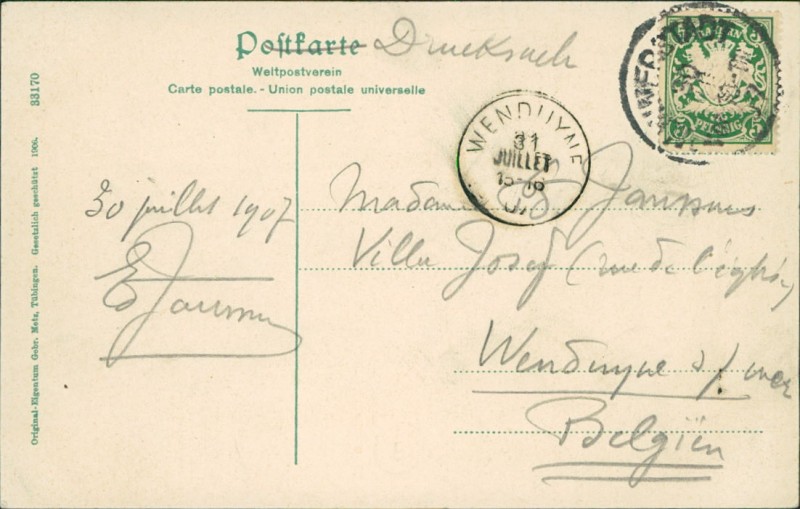 Postkarte Drucksach
Weltpostverein
Carte postale. - Union postale universelle
WENDUYNE
31
JUILLET
15-16
07
BAYERN
5 PFENNIG 5
30 juillet 1907
E Janssens
Madame E Janssens
Villa Josef (rue de l'église)
Wenduyne s/ mer
Belgien
Original-Eigentum Gebr. Metz, Tübingen. Gesetzlich geschützt 1906. 33170